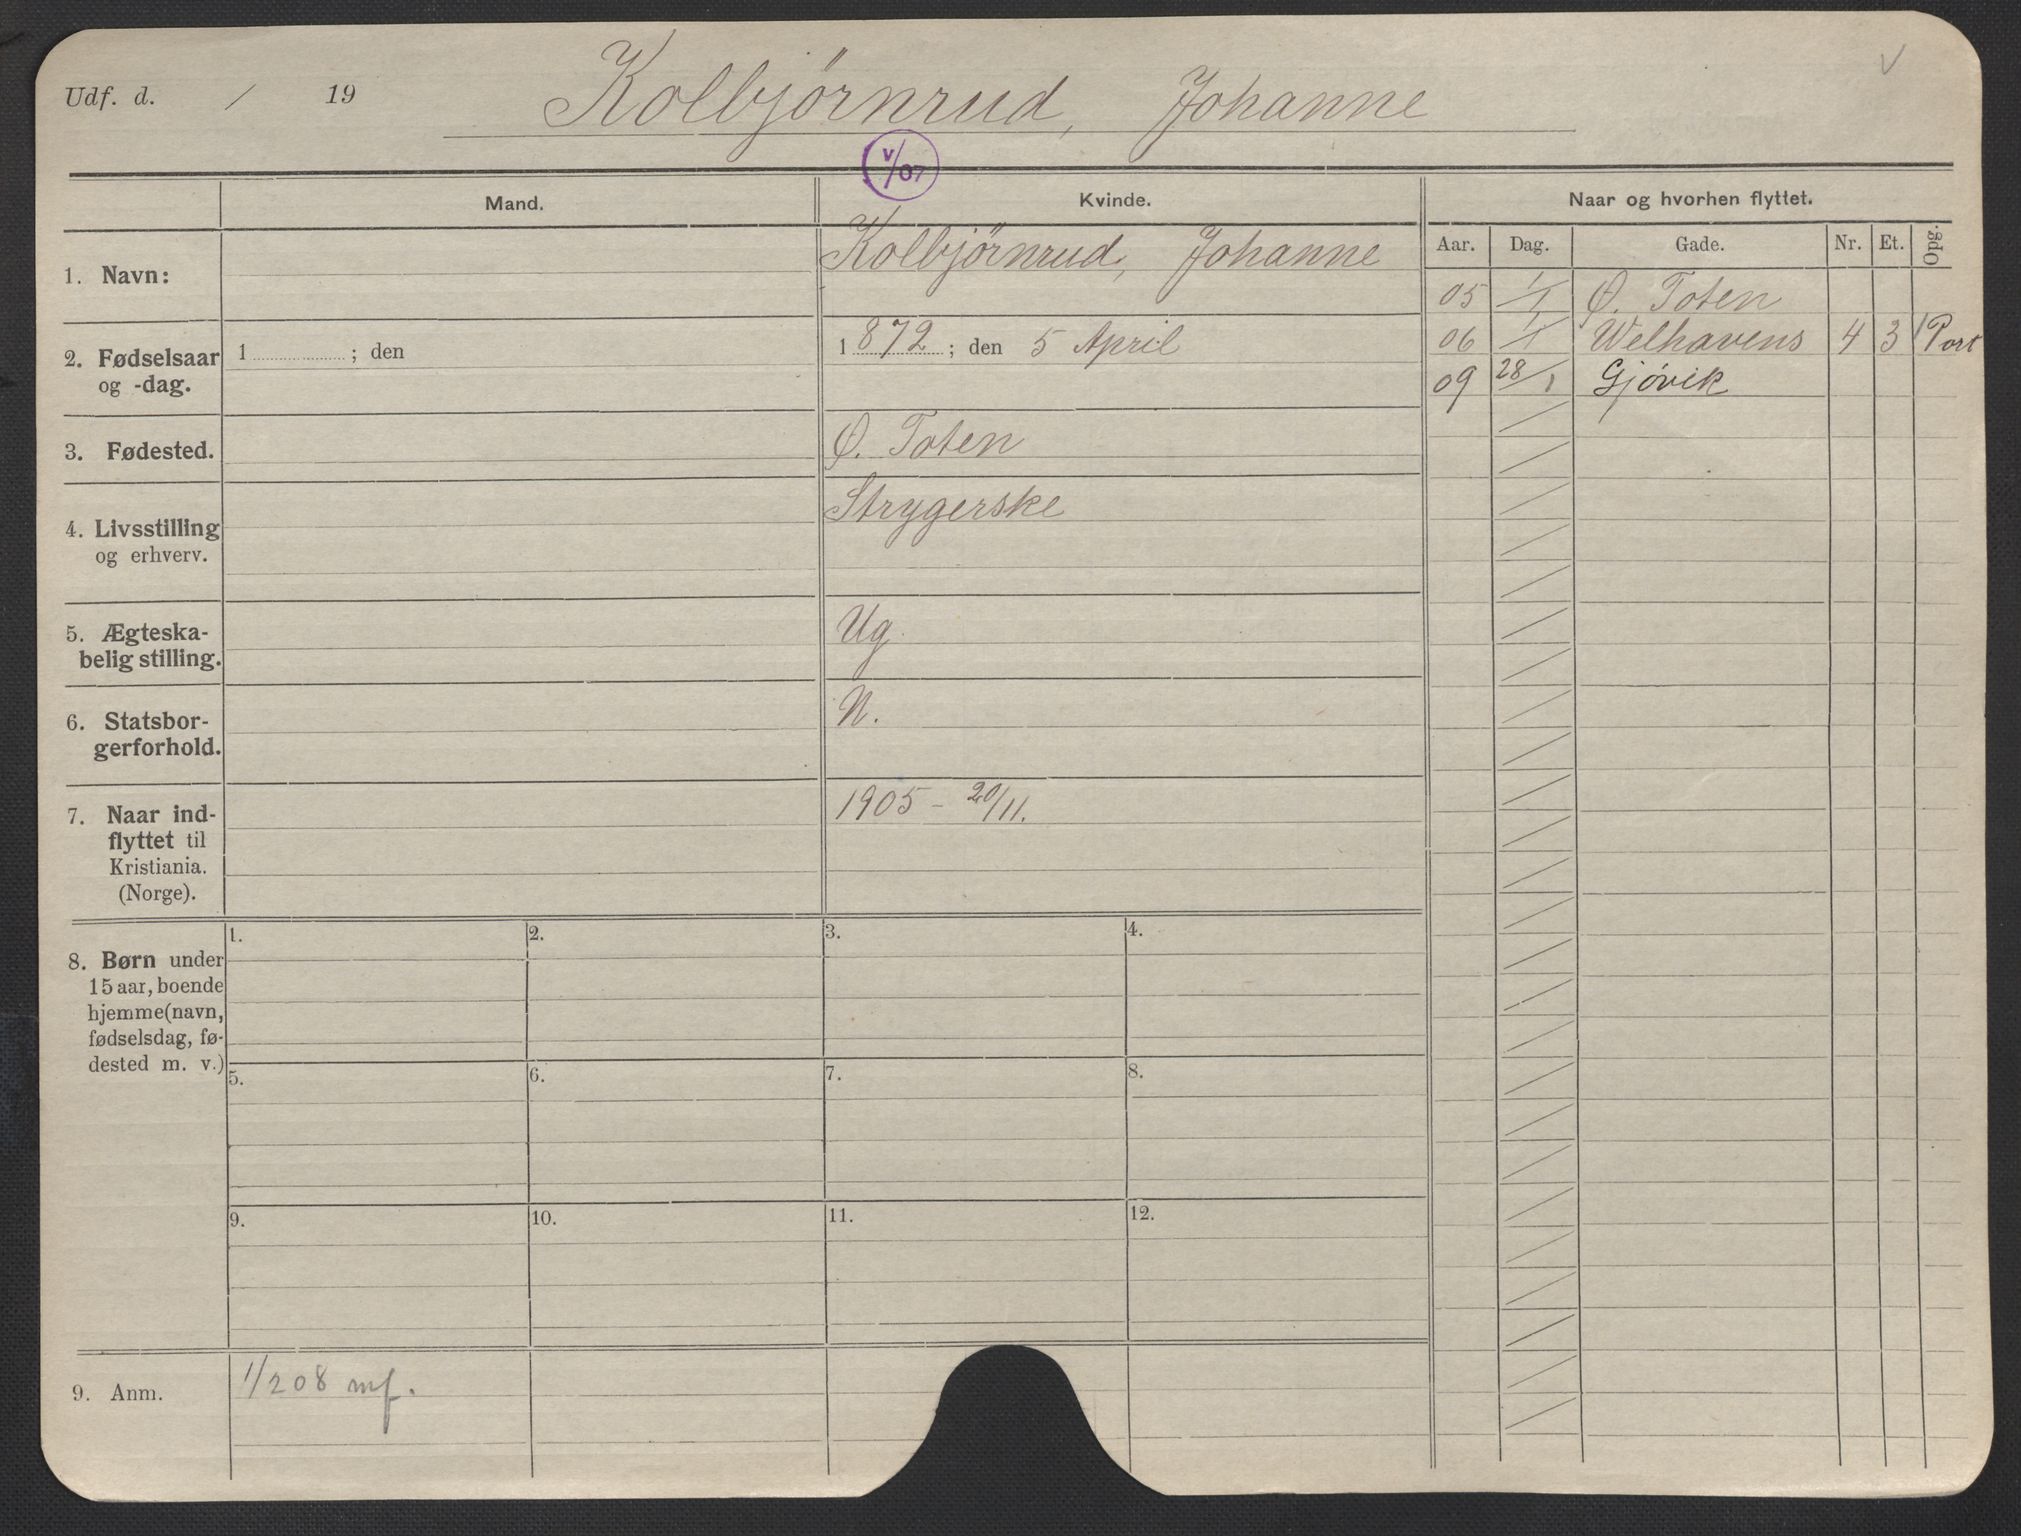 Udf. d. / 19 Kolbjørnrud, Johanne
V/07
Mand. Kvinde. Naar og hvorhen flyttet.
Aar. Dag. Gade. Nr. Et. Opg.
1. Navn: Kolbjørnrud, Johanne
05 1/1 Ø. Toten
06 1/1 Welhavens 4 3 1 Port
09 28/1 Gjøvik
2. Fødselsaar og -dag. 1 ; den 1872 ; den 5 April
3. Fødested. Ø. Toten
4. Livsstilling og erhverv. Strygerske
5. Ægteska-
belig stilling. Ug.
6. Statsbor-
gerforhold. N.
7. Naar ind-
flyttet til
Kristiania.
(Norge). 1905 - 20/11.
8. Børn under
15 aar, boende
hjemme (navn,
fødselsdag, fø-
dested m. v.)
1. 2. 3. 4.
5. 6. 7. 8.
9. 10. 11. 12.
9. Anm. 1/2 08 mf.